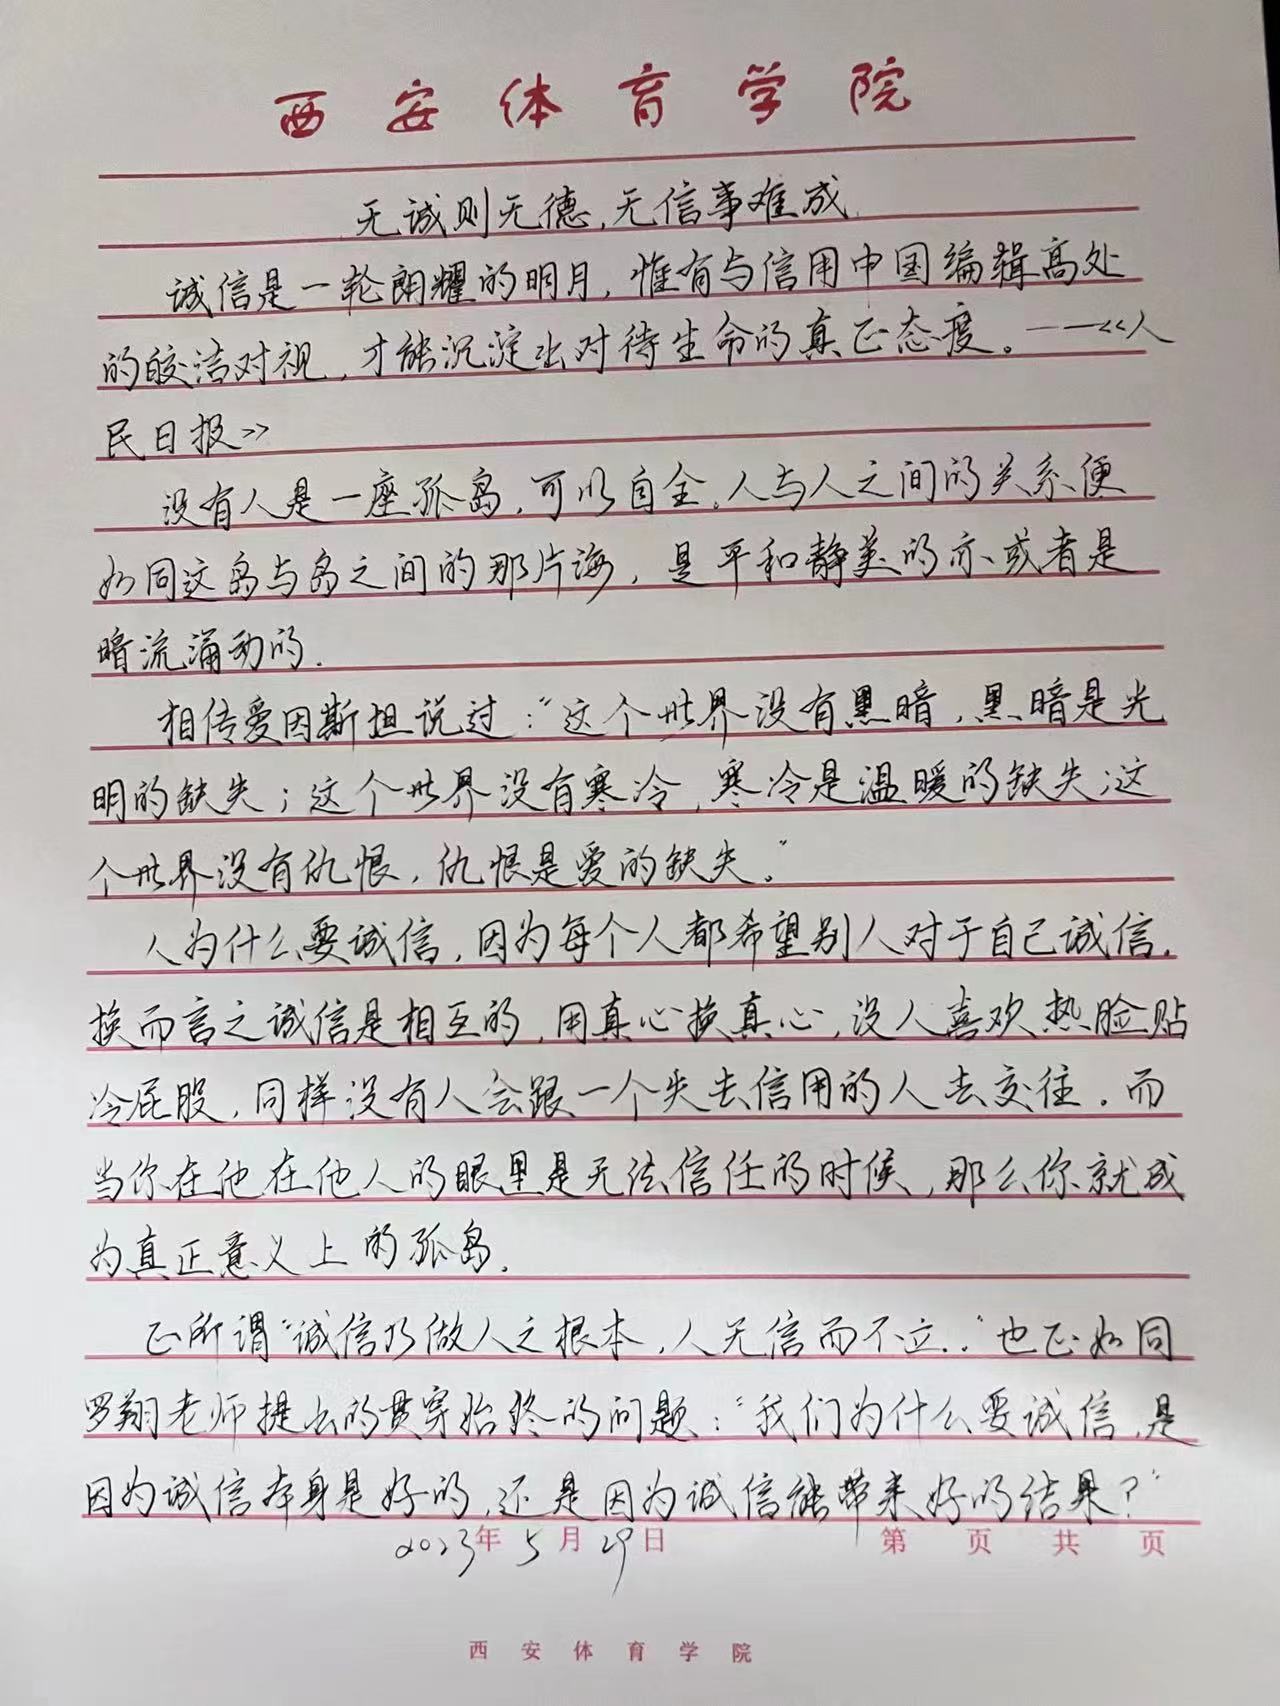 西安体育学院
无诚则无德,无信事难成
诚信是一轮朗耀的明月,惟有与信用中国编辑高处
的皎洁对视,才能沉淀出对待生命的真正态度。——《人
民日报》
没有人是一座孤岛,可以自全。人与人之间的关系便
如同这岛与岛之间的那片海,是平和静美的亦或者是
暗流涌动的.
相传爱因斯坦说过:“这个世界没有黑暗,黑暗是光
明的缺失;这个世界没有寒冷,寒冷是温暖的缺失;这
个世界没有仇恨,仇恨是爱的缺失。”
人为什么要诚信,因为每个人都希望别人对于自己诚信.
换而言之诚信是相互的,用真心换真心,没人喜欢热脸贴
冷屁股,同样没有人会跟一个失去信用的人去交往.而
当你在他在他人的眼里是无法信任的时候,那么你就成
为真正意义上的孤岛.
正所谓“诚信乃做人之根本,人无信而不立.”也正如同
罗翔老师提出的贯穿始终的问题:“我们为什么要诚信,是
因为诚信本身是好的,还是因为诚信能带来好的结果?”
2023年5月29日 第 页 共 页
西安体育学院